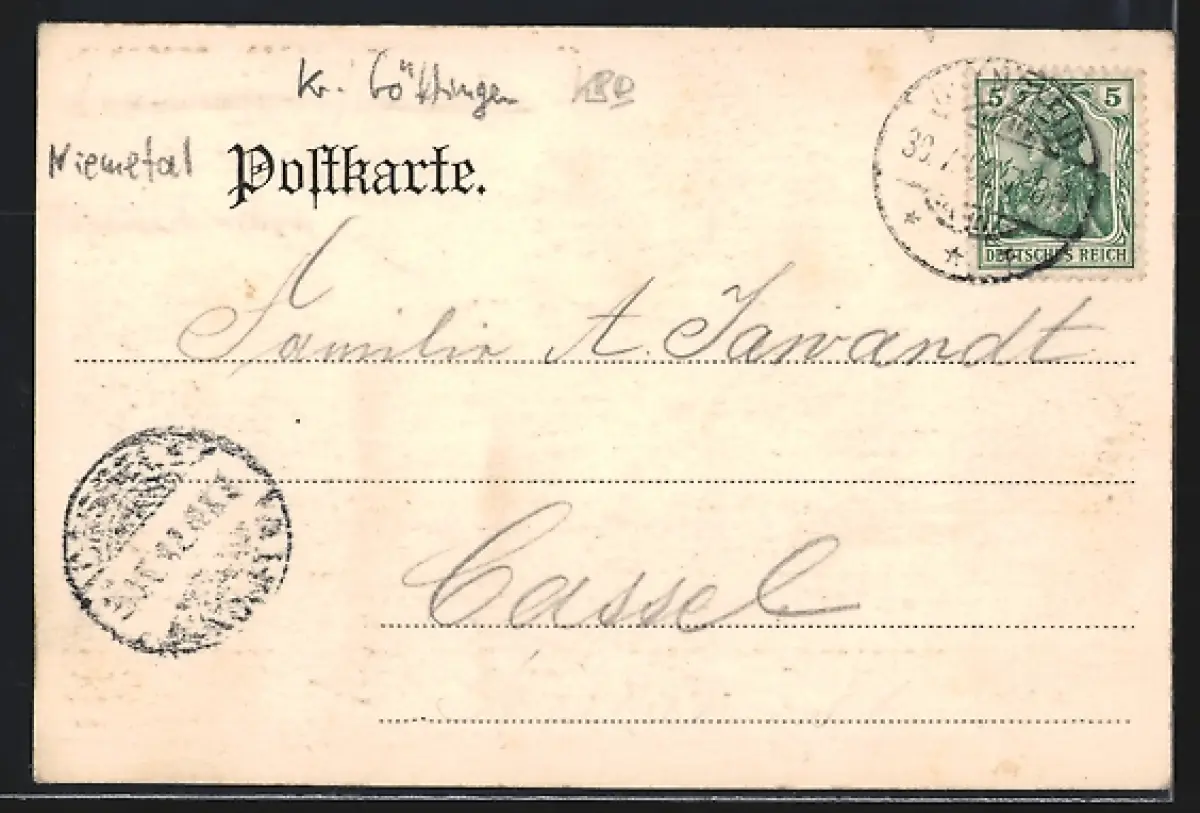 Kr. Göttingen
Niemetal
Postkarte.
5 5
DEUTSCHES REICH
Familie A. Jawandt
Cassel